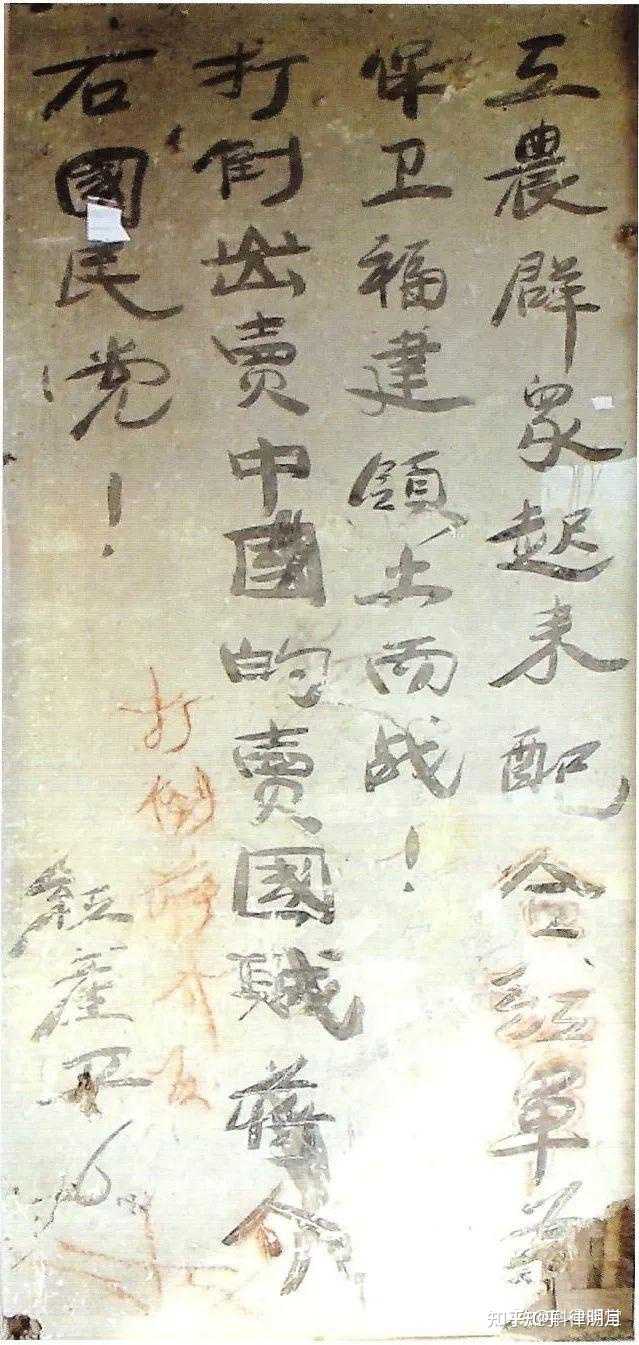 工農群眾起来配合紅軍為
保卫福建領土而战！
打倒出賣中國的賣國賊蔣介
石國民党！
打倒蔣介石
紅産卫6
知乎 @科律明宜